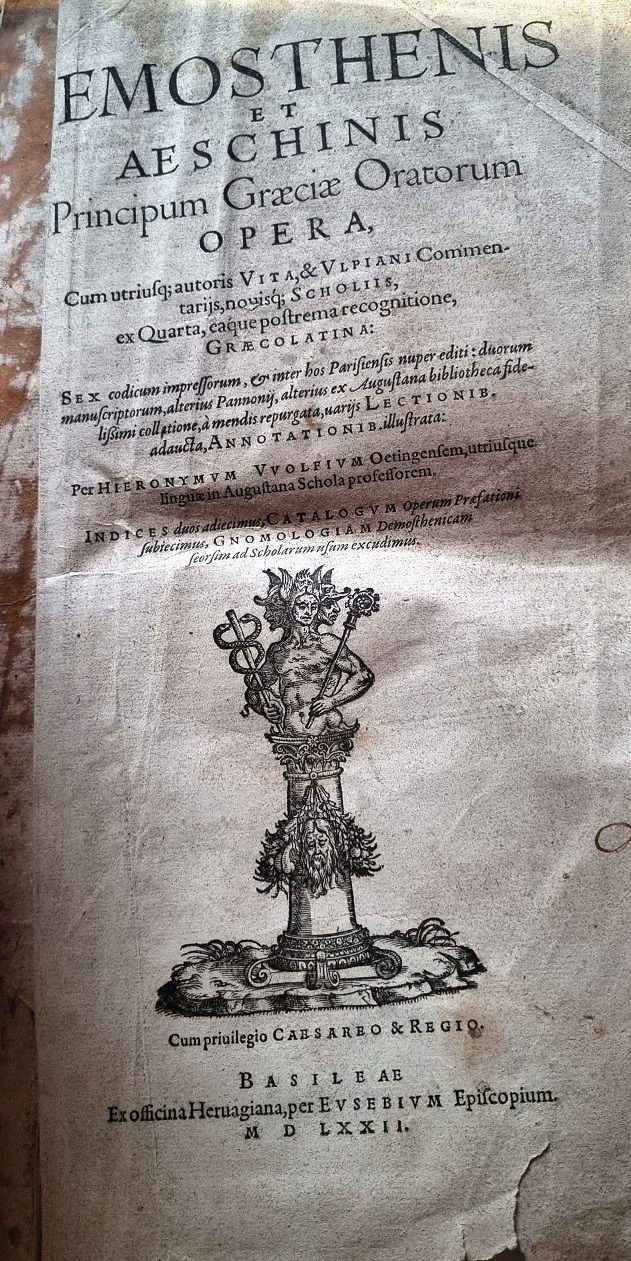 EMOSTHENIS
ET
AESCHINIS
Principum Græciæ Oratorum
OPERA,
Cum utriuſq; autoris VITA, & VLPIANI Commen-
tarijs, nouiſq; SCHOLIIS,
ex Quarta, eaque poſtrema recognitione,
GRÆCOLATINA:
SEX codicum impreſſorum, & inter hos Pariſienſis nuper editi: duorum
manuſcriptorum, alterius Pannonij, alterius ex Auguſtana bibliotheca fide-
liſſimi collatione, à mendis repurgata, uarijs LECTIONIB.
adaucta, ANNOTATIONIB. illuſtrata:
Per HIERONYMVM VVOLFIVM Oetingenſem, utriuſque
linguæ in Auguſtana Schola profeſſorem.
INDICES duos adiecimus, CATALOGVM Operum Præfationi
ſubiecimus, GNOMOLOGIAM Demoſthenicam
ſeorſim ad Scholarum uſum excudimus.
Cum priuilegio CAESAREO & REGIO.
BASILEAE
Ex officina Heruagiana, per EVSEBIVM Epiſcopium.
M D LXXII.